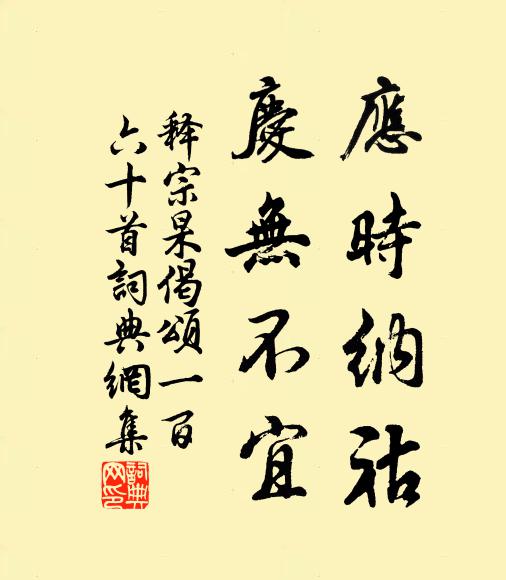 應時納祜
慶無不宜
释宗杲偈頌一百
六十首詞典網集
詞典网印